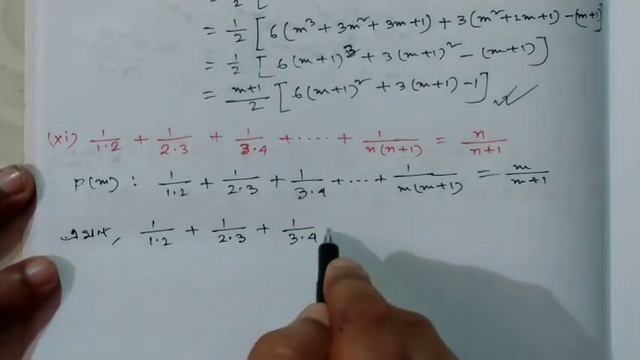 = 1/2 [
= 1/2 [6(m³ + 3m² + 3m + 1) + 3(m² + 2m + 1) - (m+1)
= 1/2 [6(m+1)³ + 3(m+1)² - (m+1)]
= (m+1)/2 [6(m+1)² + 3(m+1) - 1]
(xi) 1/(1·2) + 1/(2·3) + 1/(3·4) + ···· + 1/(n(n+1)) = n/(n+1)
P(m) : 1/(1·2) + 1/(2·3) + 1/(3·4) + ··· + 1/(m(m+1)) = m/(m+1)
এখন, 1/(1·2) + 1/(2·3) + 1/(3·4)